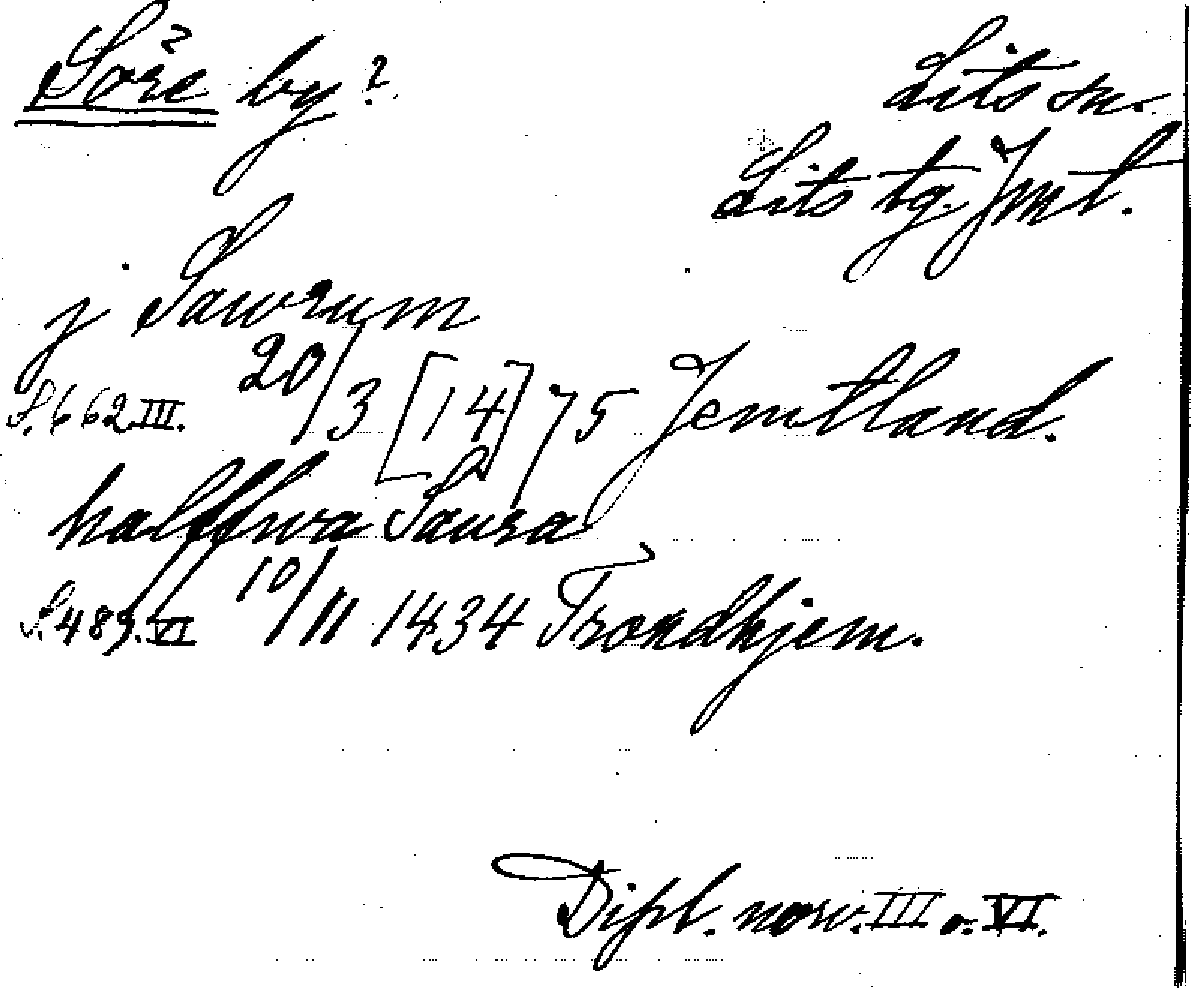 Söre by?
Lits sn.
Lits tg. Jmt.
j Sawrum
S. 662 III. 20/3 [14]75 Jemtland.
halffwa Saura
S. 489. VI 10/11 1434 Trondhjem.
Dipl. norv. III o. VI.